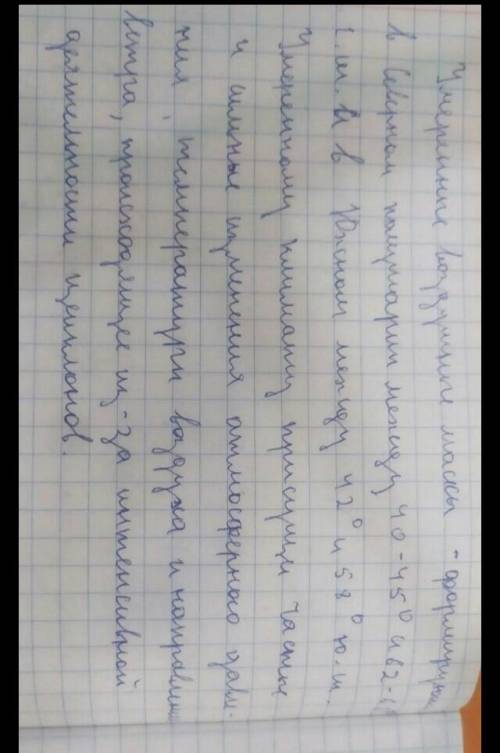 Умеренные воздушные массы - формируются
в Северном полушарии между 40-45° и 62-68
с.ш. и в Южном между 42° и 58° ю.ш.
Умеренному климату присущи частые
и сильные изменения атмосферного давле-
ния, температуры воздуха и направления
ветра, происходящее из-за интенсивной
деятельности циклонов.